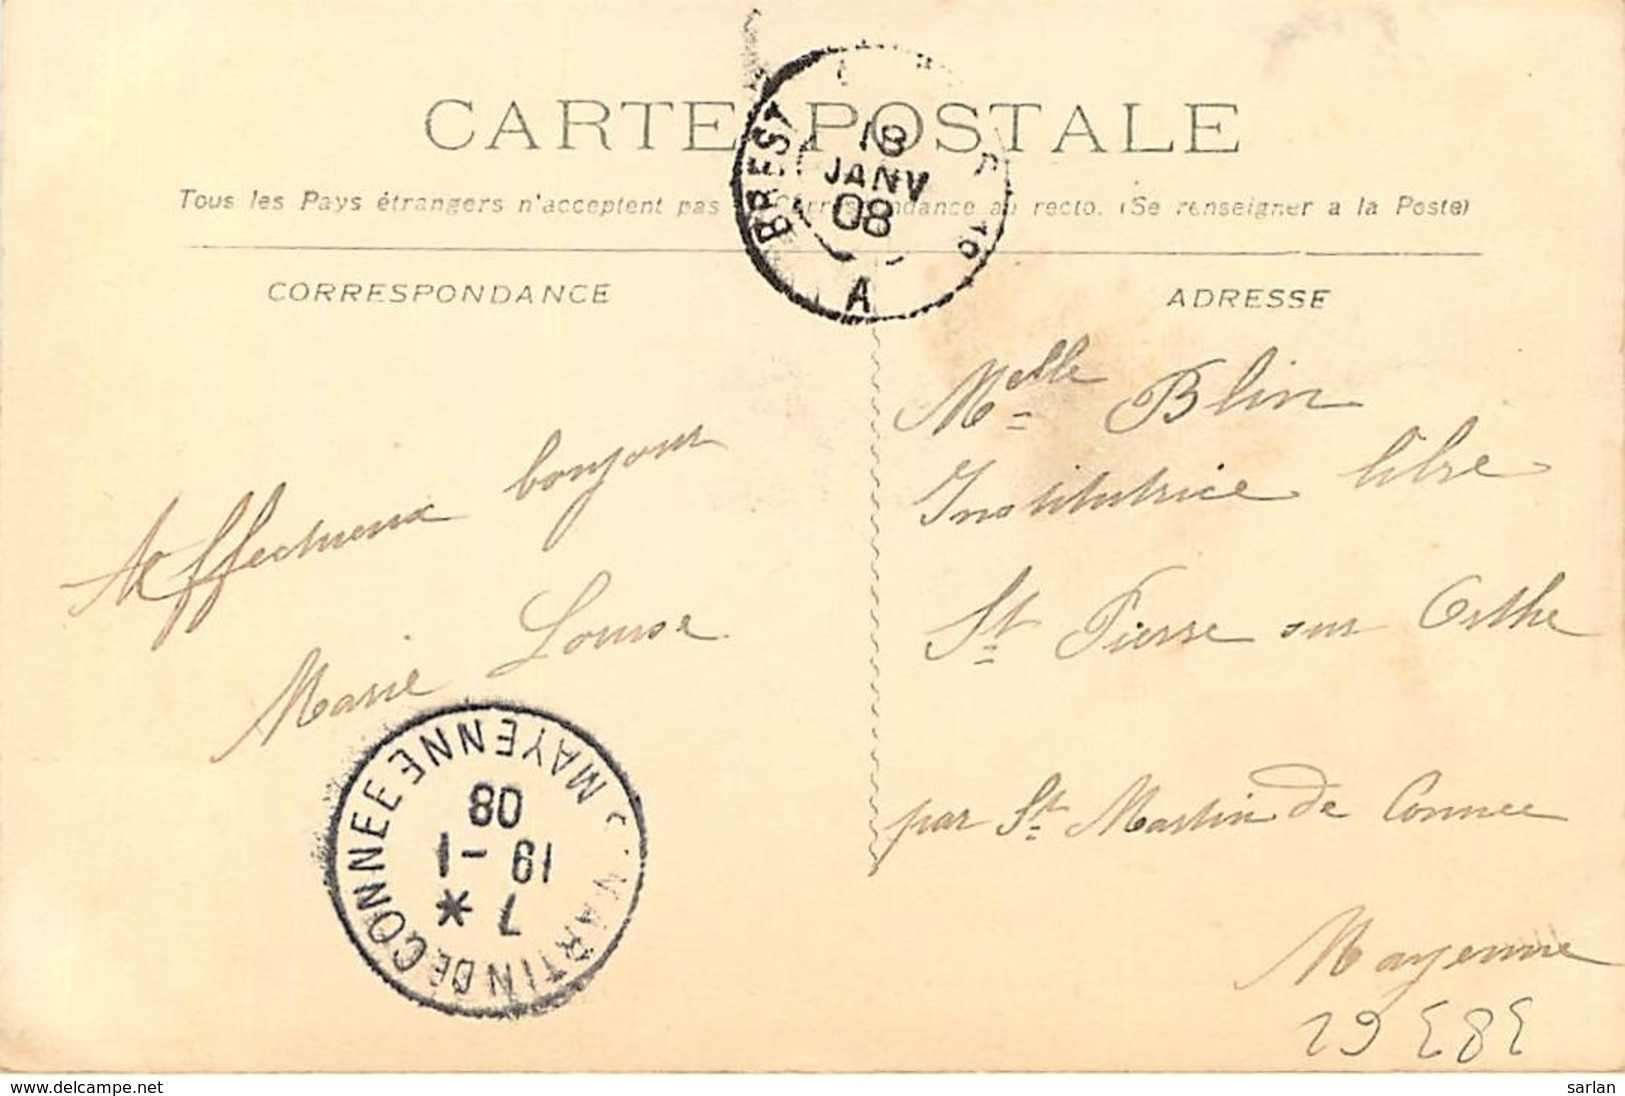 CARTE POSTALE
Tous les Pays étrangers n'acceptent pas la Correspondance au recto. (Se renseigner a la Poste)
BREST A
18
JANV
08
CORRESPONDANCE
ADRESSE
Affectueux bonjour
Marie Louise
Melle Blin
Institutrice libre
St Pierre sur Orthe
par St Martin de Connee
Mayenne
MARTIN DE CONNEE MAYENNE
7 *
19 -1
08
www.delcampe.net
sarlan